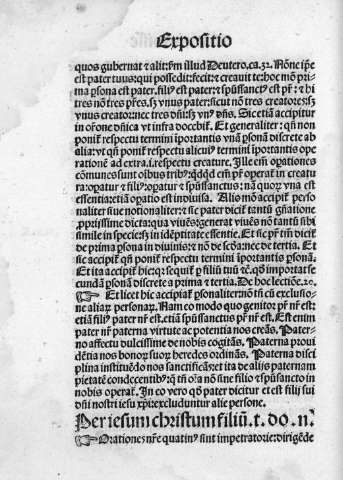 Expositio
quos gubernat ⁊ alit: ꝑm illud Deutero. ca. 32. Nōne ip̄e
est pater tuus: qui possedit: fecit: ⁊ creauit te: hoc mō pri-
ma ꝑsona est pater. filiꝰ est pater: ⁊ spūssanctꝰ est pr̄: ⁊ hi
tres nō tres pr̄es. sꝫ vnus pater: sicut nō tres creatores: sꝫ
vnus creator: nec tres dn̄i: sꝫ vnꝰ dn̄s. Sic etiā accipitur
in or̄one dn̄ica vt infra docebit̉. Et generaliter: qn̄ non
ponit̉ respectu termini īportantis vnā ꝑsonā discrete ab
alia: vt qn̄ ponit̉ respectu alicuiꝰ termini īportantis ope
rationē ad extra .i. respectu creature. Ille em̄ oꝑationes
cōmunes sunt oībus tribꝰ: qꝛ qd̓qd em̄ pr̄ operat̉ in creatu
ra: oꝑatur ⁊ filiꝰ: oꝑatur ⁊ spūssanctus: nā quoꝝ vna est
essentia: etiā oꝑatio est indiuisa. Alio mō accipit̉ perso
naliter siue notionaliter: ⁊ sic pater dicit̉ tantū gn̄atione
ꝓprijssime dicta: qua viuēs: generat viuēs nō tantū sibi
simile in specie: sꝫ in idēptitate essentie. Et sic pr̄ tm̄ dicit̉
de prima ꝑsona in diuinis: ⁊ nō de scd̓a: nec de tertia. Et
sic accipit̉ qn̄ ponit̉ respectu termini īportantis ꝑsonā.
Et ita accipit̉ hic: qꝛ seq̄tur ꝑ filiū tuū ⁊c̄. qd̓ importat se
cundā ꝑsonā discrete a prima ⁊ tertia. De hoc lectiōe. 20.
Et licet hic accipiat̉ ꝑsonaliter: nō tn̄ cū exclusio-
ne aliaꝝ personaꝝ. Nam eo modo quo genitor pr̄ nr̄ est:
etiā filiꝰ pater nr̄ est. etiā spūssanctus pr̄ nr̄ est. Est enim
pater nr̄ paterna virtute ac potentia nos creās. Pater-
no affectu dulcissime de nobis cogitās. Paterna proui
dētia nos bonoꝝ suoꝝ heredes ordinās. Paterna disci
plina instituēdo nos sanctificās: ⁊ ita de alijs paternam
pietatē condecentibꝰ: qꝛ tn̄ oīa nō sine filio ⁊ spūsancto in
nobis operat̉. In eo vero qd̓ pater dicitur et est filij sui
dn̄i nostri iesu xp̄i: excluduntur alie persone.
Per iesum christum filiū. t. do. n.
Orationes nr̄e quatinꝰ sint impetratorie: dirigēde